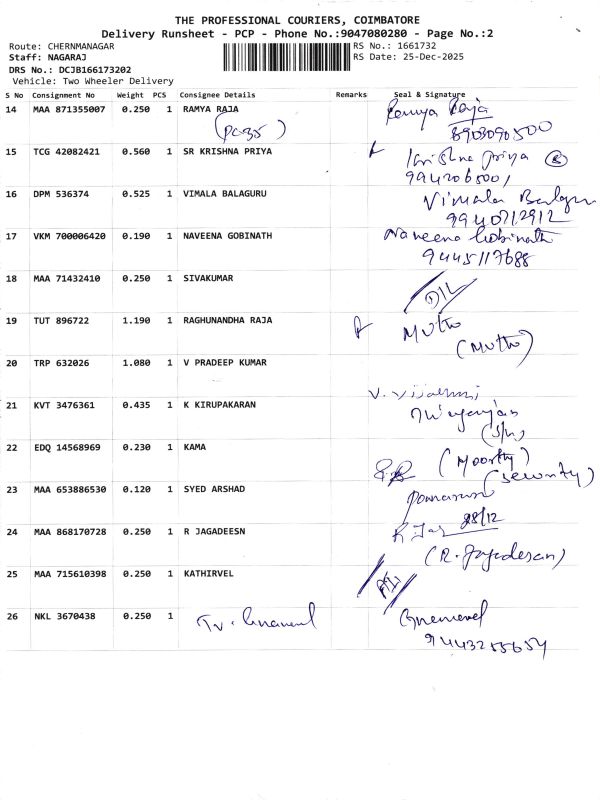 THE PROFESSIONAL COURIERS, COIMBATORE
Delivery Runsheet - PCP - Phone No.:9047080280 - Page No.:2
Route: CHERNMANAGAR RS No.: 1661732
Staff: NAGARAJ RS Date: 25-Dec-2025
DRS No.: DCJB166173202
Vehicle: Two Wheeler Delivery
S No Consignment No Weight PCS Consignee Details Remarks Seal & Signature
14 MAA 871355007 0.250 1 RAMYA RAJA Ramya Raja
15 TCG 42082421 0.560 1 SR KRISHNA PRIYA Krishna priya
16 DPM 536374 0.525 1 VIMALA BALAGURU Vimala
9940712912
17 VKM 700006420 0.190 1 NAVEENA GOBINATH Naveena Gobinath
9445117688
18 MAA 71432410 0.250 1 SIVAKUMAR
19 TUT 896722 1.190 1 RAGHUNANDHA RAJA Muthu
(Muthu)
20 TRP 632026 1.080 1 V PRADEEP KUMAR
21 KVT 3476361 0.435 1 K KIRUPAKARAN
22 EDQ 14568969 0.230 1 KAMA (Moorthy)
(Security)
23 MAA 653886530 0.120 1 SYED ARSHAD
28/12
24 MAA 868170728 0.250 1 R JAGADEESN
(R. Jagadesan)
25 MAA 715610398 0.250 1 KATHIRVEL
26 NKL 3670438 0.250 1
9443255654